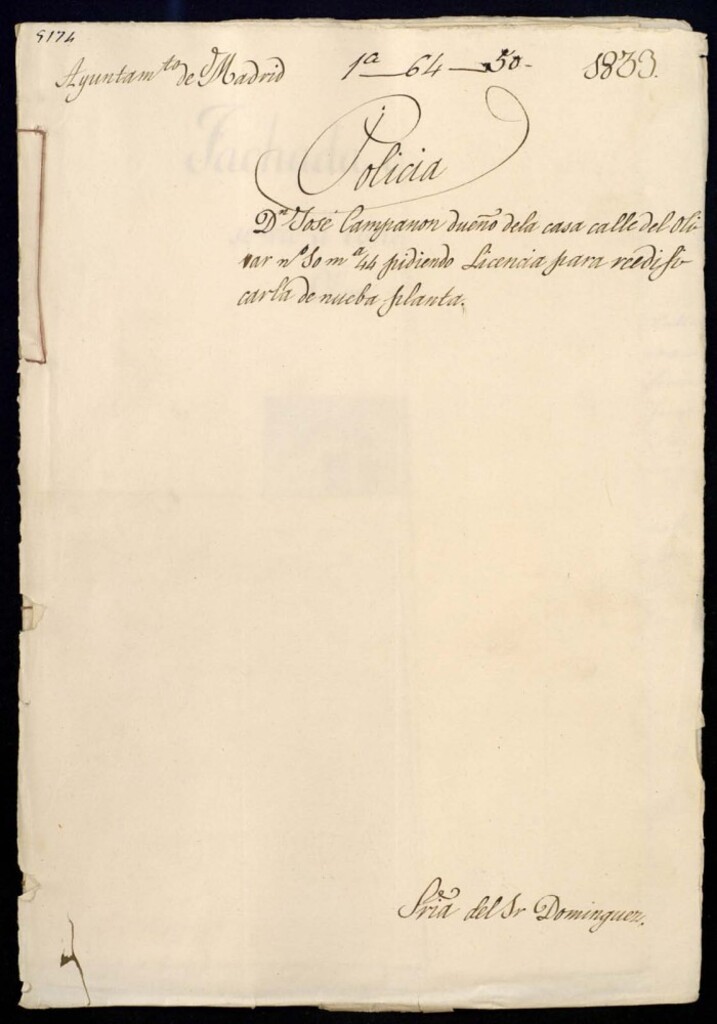 5174
Ayuntam.to de Madrid 1ª—64—50- 1833.
Policia
Dn José Campanon dueño dela casa calle del Oli
var nº 10 mª 44 pidiendo Licencia para reedifi
carla de nueba planta.
Sria del Sr Dominguez.